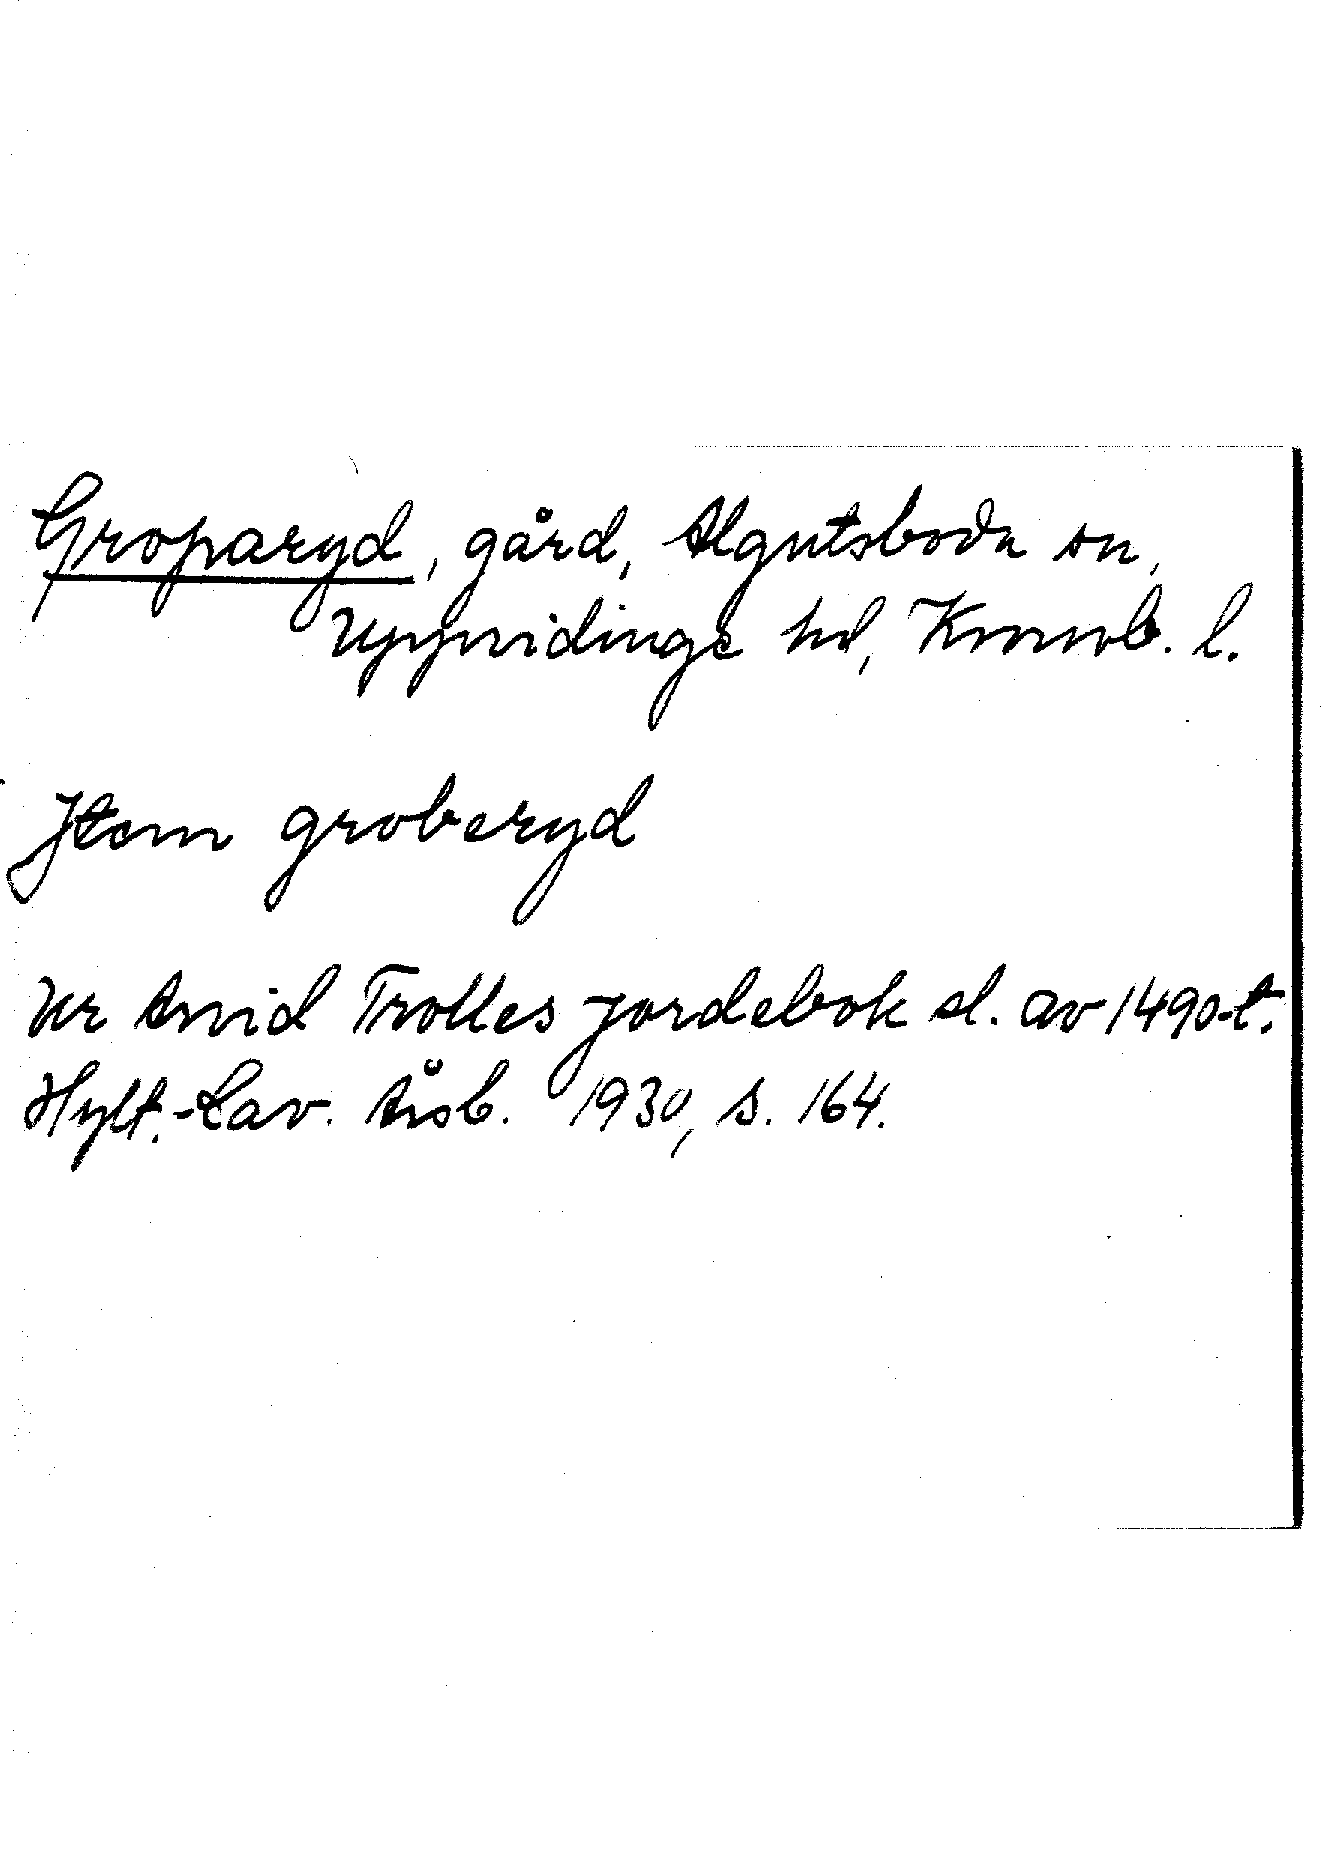 Groparyd, gård, Algutsboda sn,
Uppvidinge hd, Kronob. l.
Jtem groberyd
Ur Arvid Trolles jordebok sl. av 1490-t.
Hylt.-Cav. Årsb. 1930, s. 164.